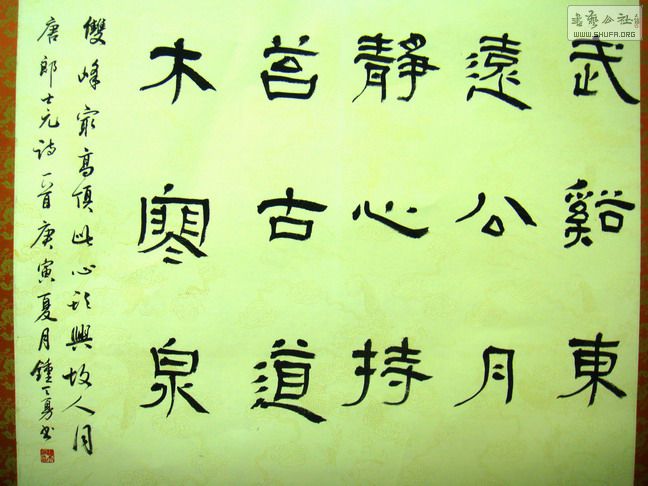 書藝公社
WWW.SHUFA.ORG
武谿東
遠公月
靜心持
苔古道
木寒泉
雙峰最高頂此心期與故人同
唐郎士元詩一首庚寅夏月鍾勇书